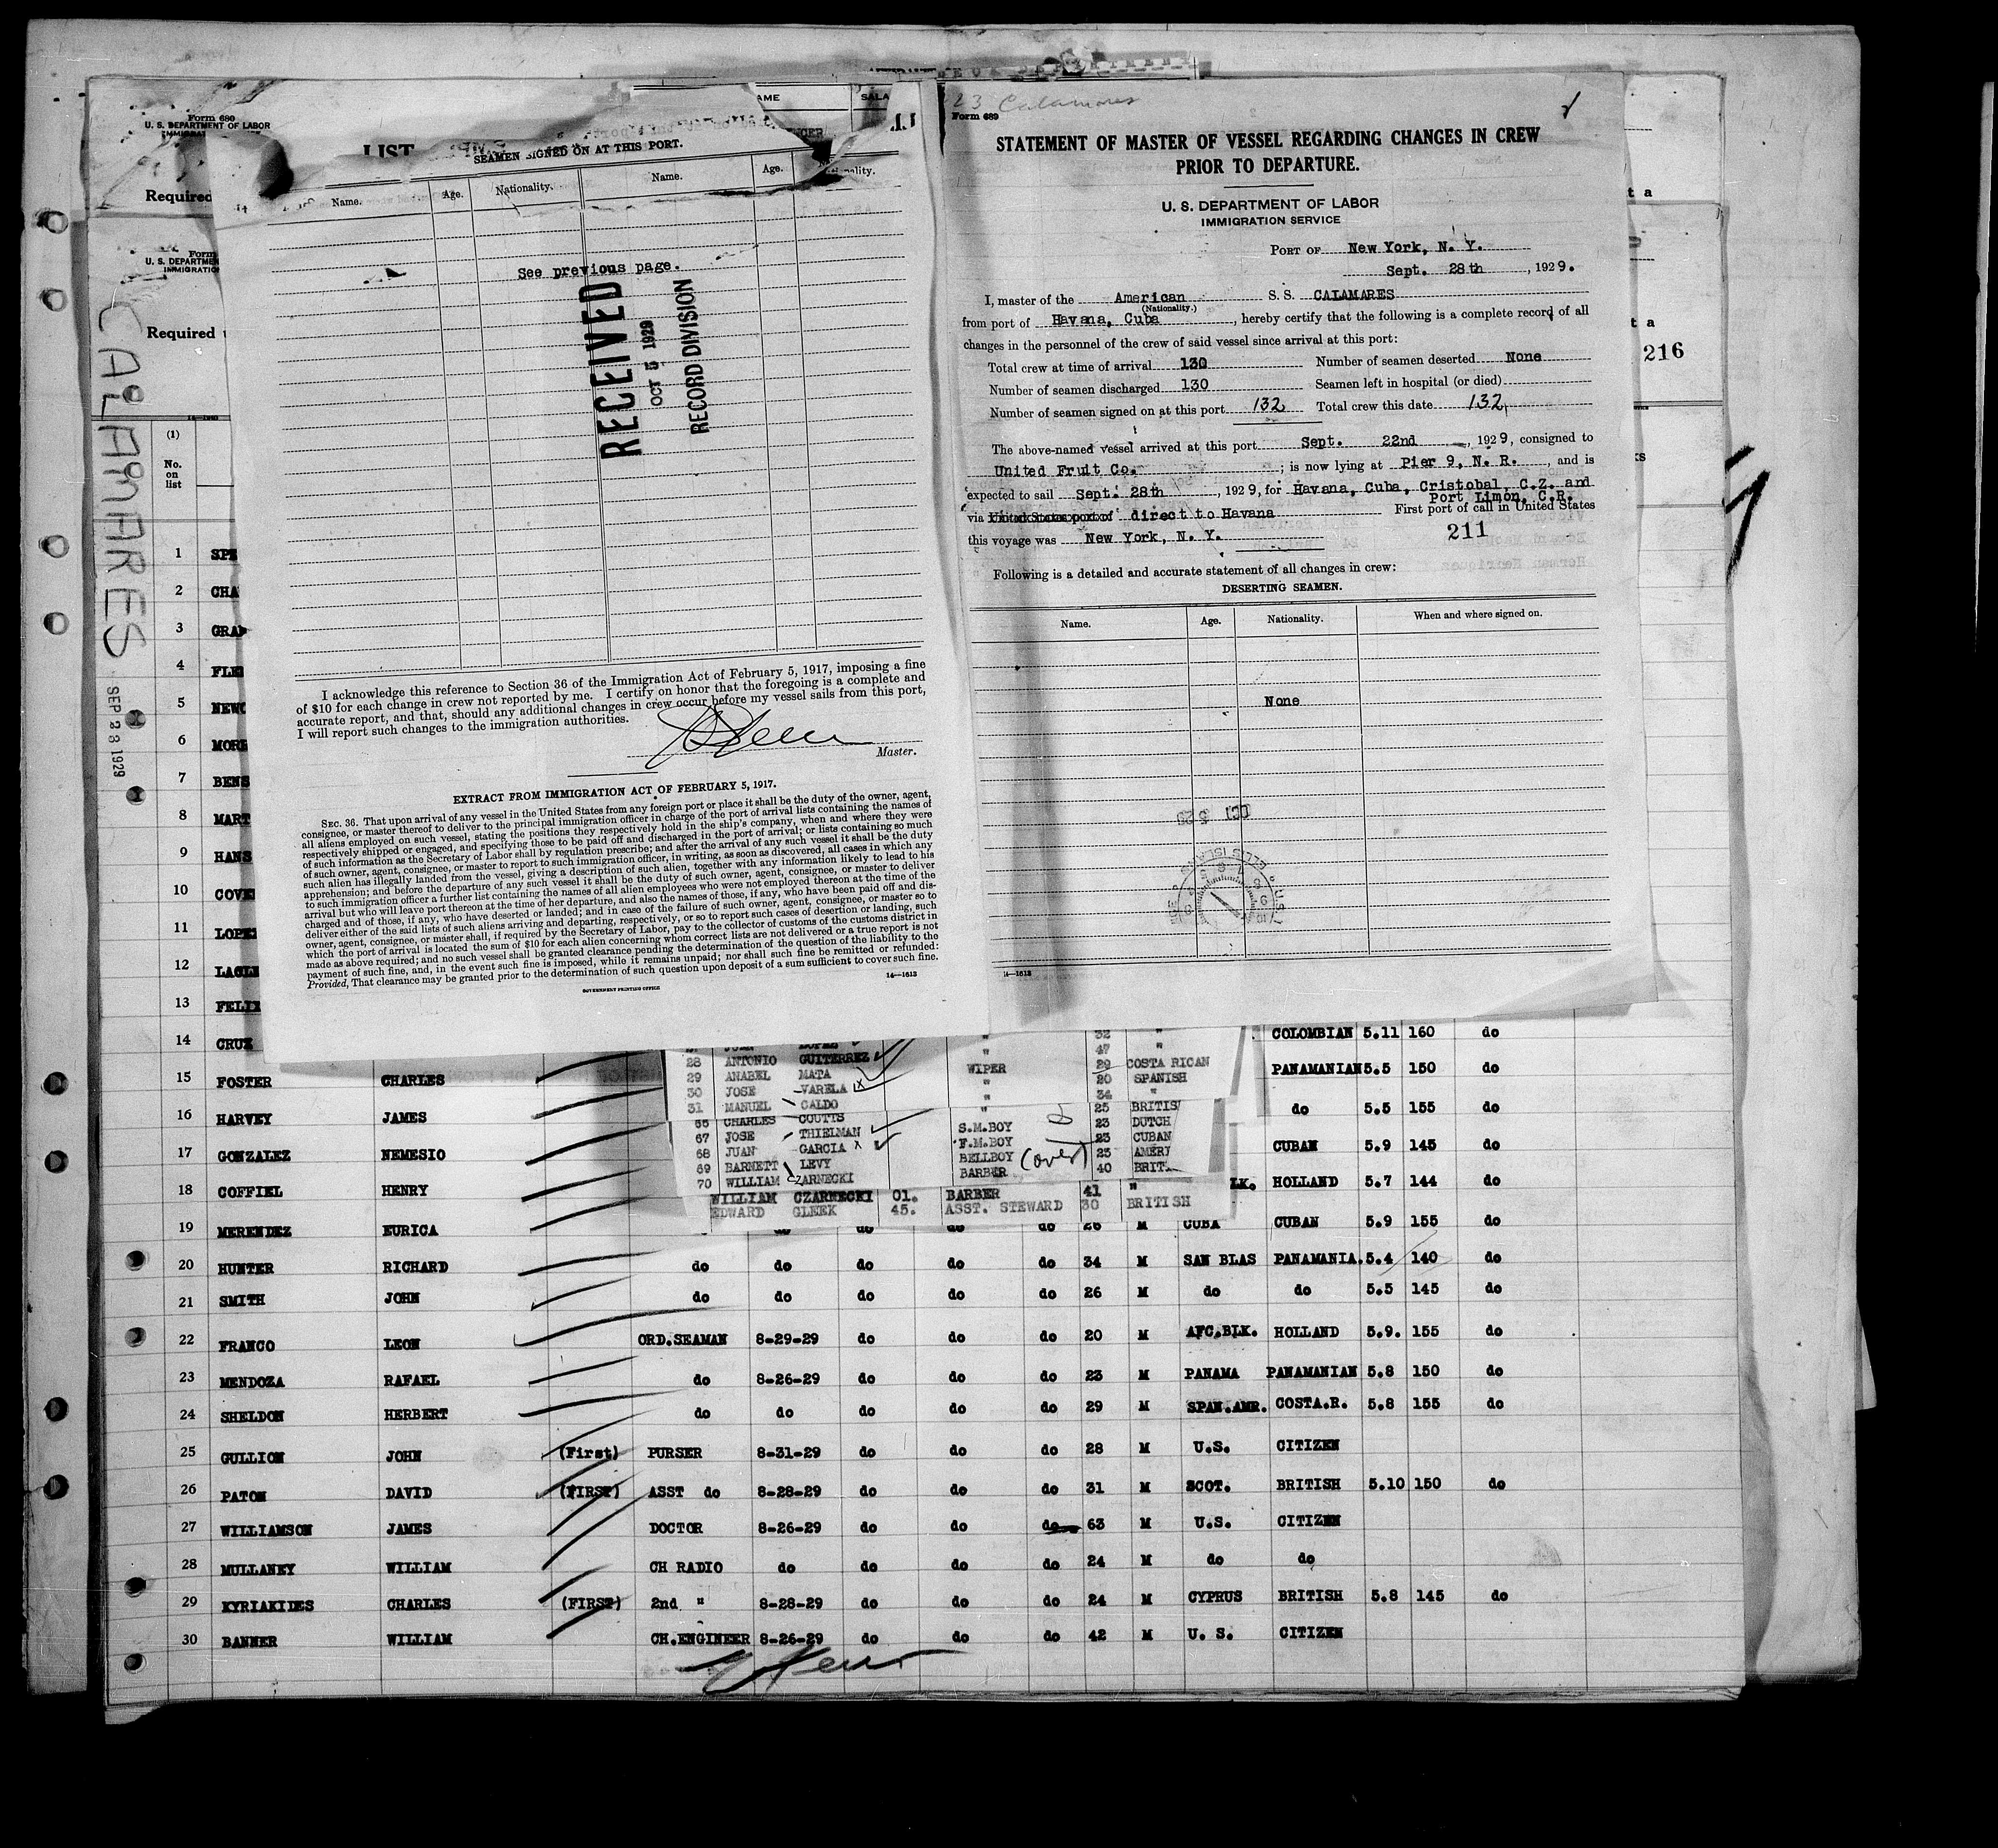 Form 680
U. S. DEPARTMENT OF LABOR
LIST
Required
Form
U. S. DEPARTMEN
IMMIGRATIO
Required
CALAMARES
SEP 23 1929
(1)
No.
on
list
AME
SALA
SEAMEN SIGNED ON AT THIS PORT.
Name. Age. Nationality. Name. Age.
See previous page.
RECEIVED
OCT 5 1929
RECORD DIVISION
I acknowledge this reference to Section 36 of the Immigration Act of February 5, 1917, imposing a fine
of $10 for each change in crew not reported by me. I certify on honor that the foregoing is a complete and
accurate report, and that, should any additional changes in crew occur before my vessel sails from this port,
I will report such changes to the immigration authorities.
Master.
EXTRACT FROM IMMIGRATION ACT OF FEBRUARY 5, 1917.
SEC. 36. That upon arrival of any vessel in the United States from any foreign port or place it shall be the duty of the owner, agent,
consignee, or master thereof to deliver to the principal immigration officer in charge of the port of arrival lists containing the names of
all aliens employed on such vessel, stating the positions they respectively hold in the ship's company, when and where they were
respectively shipped or engaged, and specifying those to be paid off and discharged in the port of arrival; or lists containing so much
of such information as the Secretary of Labor shall by regulation prescribe; and after the arrival of any such vessel it shall be the duty
of such owner, agent, consignee, or master to report to such immigration officer, in writing, as soon as discovered, all cases in which any
such alien has illegally landed from the vessel, giving a description of such alien, together with any information likely to lead to his
apprehension; and before the departure of any such vessel it shall be the duty of such owner, agent, consignee, or master to deliver
to such immigration officer a further list containing the names of all alien employees who were not employed thereon at the time of the
arrival but who will leave port thereon at the time of her departure, and also the names of those, if any, who have been paid off and dis-
charged and of those, if any, who have deserted or landed; and in case of the failure of such owner, agent, consignee, or master so to
deliver either of the said lists of such aliens arriving and departing, respectively, or so to report such cases of desertion or landing, such
owner, agent, consignee, or master shall, if required by the Secretary of Labor, pay to the collector of customs of the customs district in
which the port of arrival is located the sum of $10 for each alien concerning whom correct lists are not delivered or a true report is not
made as above required; and no such vessel shall be granted clearance pending the determination of the question of the liability to the
payment of such fine, and, in the event such fine is imposed, while it remains unpaid; nor shall such fine be remitted or refunded:
Provided, That clearance may be granted prior to the determination of such question upon deposit of a sum sufficient to cover such fine.
GOVERNMENT PRINTING OFFICE 14—1613
23 Calamares
Form 689
STATEMENT OF MASTER OF VESSEL REGARDING CHANGES IN CREW
PRIOR TO DEPARTURE.
U. S. DEPARTMENT OF LABOR
IMMIGRATION SERVICE
PORT OF New York, N. Y.
Sept. 28th, 1929.
I, master of the American S. S. CALAMARES
(Nationality.)
from port of Havana, Cuba, hereby certify that the following is a complete record of all
changes in the personnel of the crew of said vessel since arrival at this port:
Total crew at time of arrival 130 Number of seamen deserted None
Number of seamen discharged 130 Seamen left in hospital (or died)
Number of seamen signed on at this port 132 Total crew this date 132
The above-named vessel arrived at this port Sept. 22nd, 1929, consigned to
United Fruit Co. ; is now lying at Pier 9, N. R., and is
expected to sail Sept. 28th, 1929, for Havana, Cuba, Cristobal, C.Z. and
Port Limon, C.R.
via United States port of direct to Havana First port of call in United States
this voyage was New York, N. Y. 211
Following is a detailed and accurate statement of all changes in crew:
DESERTING SEAMEN.
Name. Age. Nationality. When and where signed on.
None
14—1613
t a
t a
216
1 SPE
2 CHA
3 GRA
4 FLE
5 NEWC
6 MORE
7 BENS
8 MART
9 HANS
10 COVE
11 LOPE
12 LACLE
13 FELI
14 CRUZ COLOMBIAN 5.11 160 do
15 FOSTER CHARLES PANAMANIAN 5.5 150 do
16 HARVEY JAMES do 5.5 155 do
17 GONZALEZ NEMESIO CUBAN 5.9 145 do
18 COFFIEL HENRY LK. HOLLAND 5.7 144 do
32 "
" 47 "
28 ANTONIO GUITERREZ WIPER 29 COSTA RICAN
29 ANABEL MATA " 20 SPANISH
30 JOSE VARELA " 34 "
31 MANUEL CALDO " 25 BRITIS
66 CHARLES COUTTS S.M.BOY 23 DUTCH
67 JOSE THIELMAN F.M.BOY 23 CUBAN
68 JUAN GARCIA BELLBOY (over) 25 AMERI
69 BARNETT LEVY BARBER 40 BRIT
70 WILLIAM CZARNECKI
WILLIAM CZARNECKI 01. BARBER 41 "
EDWARD GLEEK 45. ASST. STEWARD 30 BRITISH
19 MERENDEZ EURICA do do do do 26 M CUBA CUBAN 5.9 155 do
20 HUNTER RICHARD do do do do do 34 M SAN BLAS PANAMANIA. 5.4 140 do
21 SMITH JOHN do do do do do 26 M do do 5.5 145 do
22 FRANCO LEON ORD.SEAMAN 8-29-29 do do do 20 M AFC.BLK. HOLLAND 5.9. 155 do
23 MENDOZA RAFAEL do 8-26-29 do do do 23 M PANAMA PANAMANIAN 5.8 150 do
24 SHELDON HERBERT do do do do do 29 M SPAN.AMR. COSTA.R. 5.8 155 do
25 GULLION JOHN (First) PURSER 8-31-29 do do do 28 M U.S. CITIZEN
26 PATON DAVID (FIRST) ASST do 8-28-29 do do do 31 M SCOT. BRITISH 5.10 150 do
27 WILLIAMSON JAMES DOCTOR 8-26-29 do do do 63 M U.S. CITIZEN
28 MULLANEY WILLIAM CH RADIO do do do do 24 M do do
29 KYRIAKIDES CHARLES (FIRST) 2nd " 8-28-29 do do do 24 M CYPRUS BRITISH 5.8 145 do
30 BANNER WILLIAM CH.ENGINEER 8-26-29 do do do 42 M U. S. CITIZEN